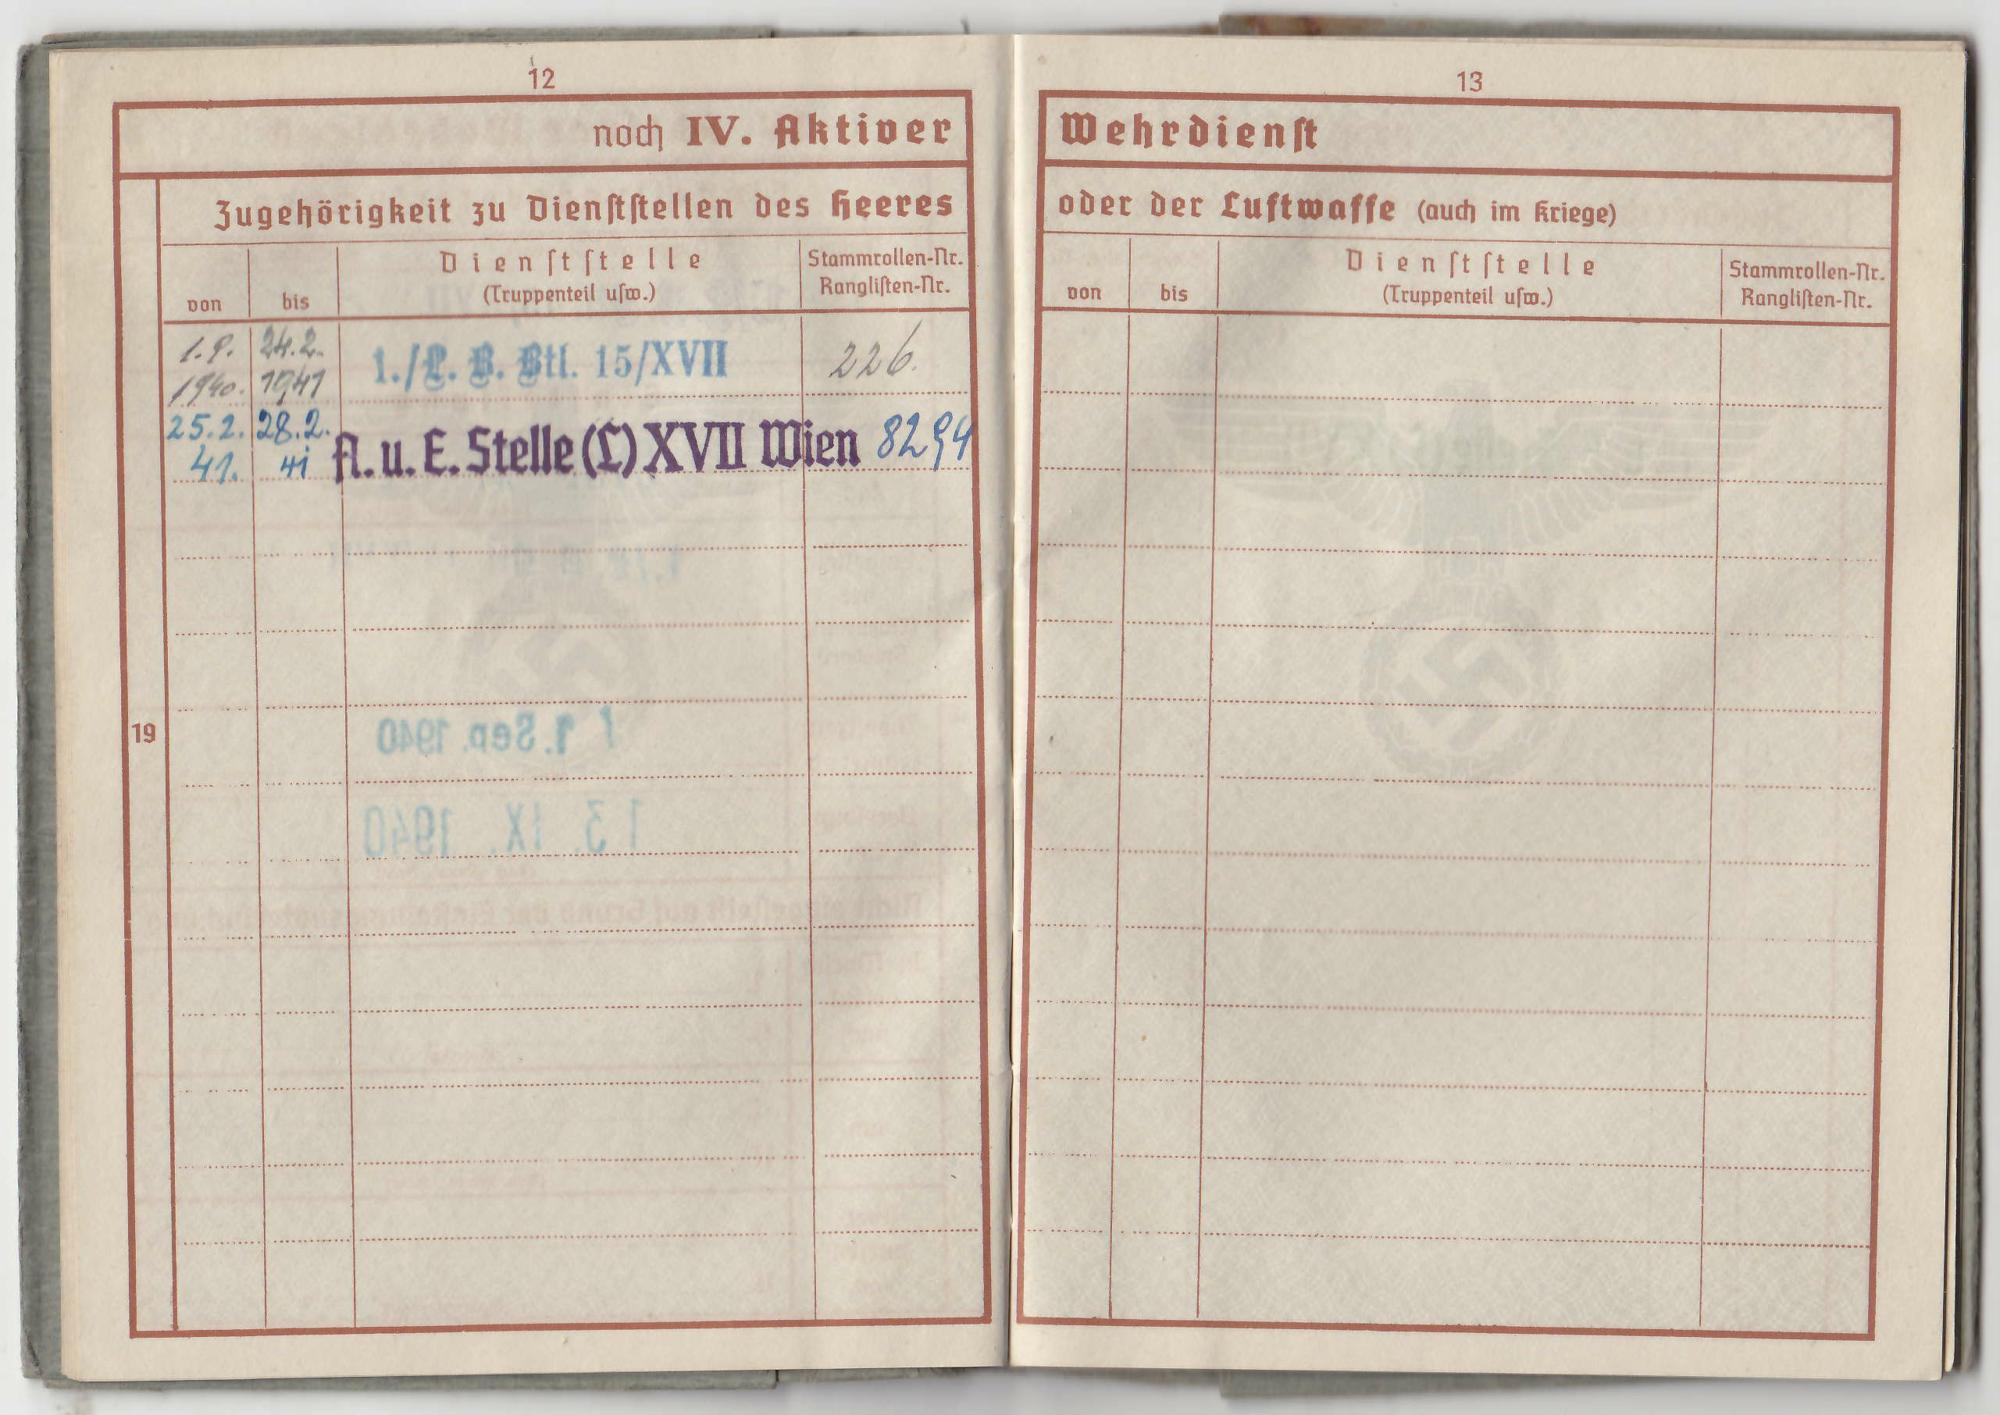 12
noch IV. Aktiver
Zugehörigkeit zu Dienststellen des Heeres
von
bis
Dienststelle
(Truppenteil usw.)
Stammrollen-Nr.
Ranglisten-Nr.
1.9.
1940.
24.2.
1941
1./L. B. Btl. 15/XVII
226.
25.2.
41.
28.2.
41
A. u. E. Stelle (L) XVII Wien
8294
1. Sep. 1940
13. IX. 1940
19
13
Wehrdienst
oder der Luftwaffe (auch im Kriege)
von
bis
Dienststelle
(Truppenteil usw.)
Stammrollen-Nr.
Ranglisten-Nr.